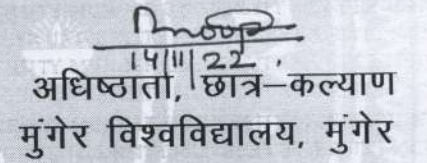 14/11/22.
अधिष्ठाता, छात्र–कल्याण
मुंगेर विश्वविद्यालय, मुंगेर